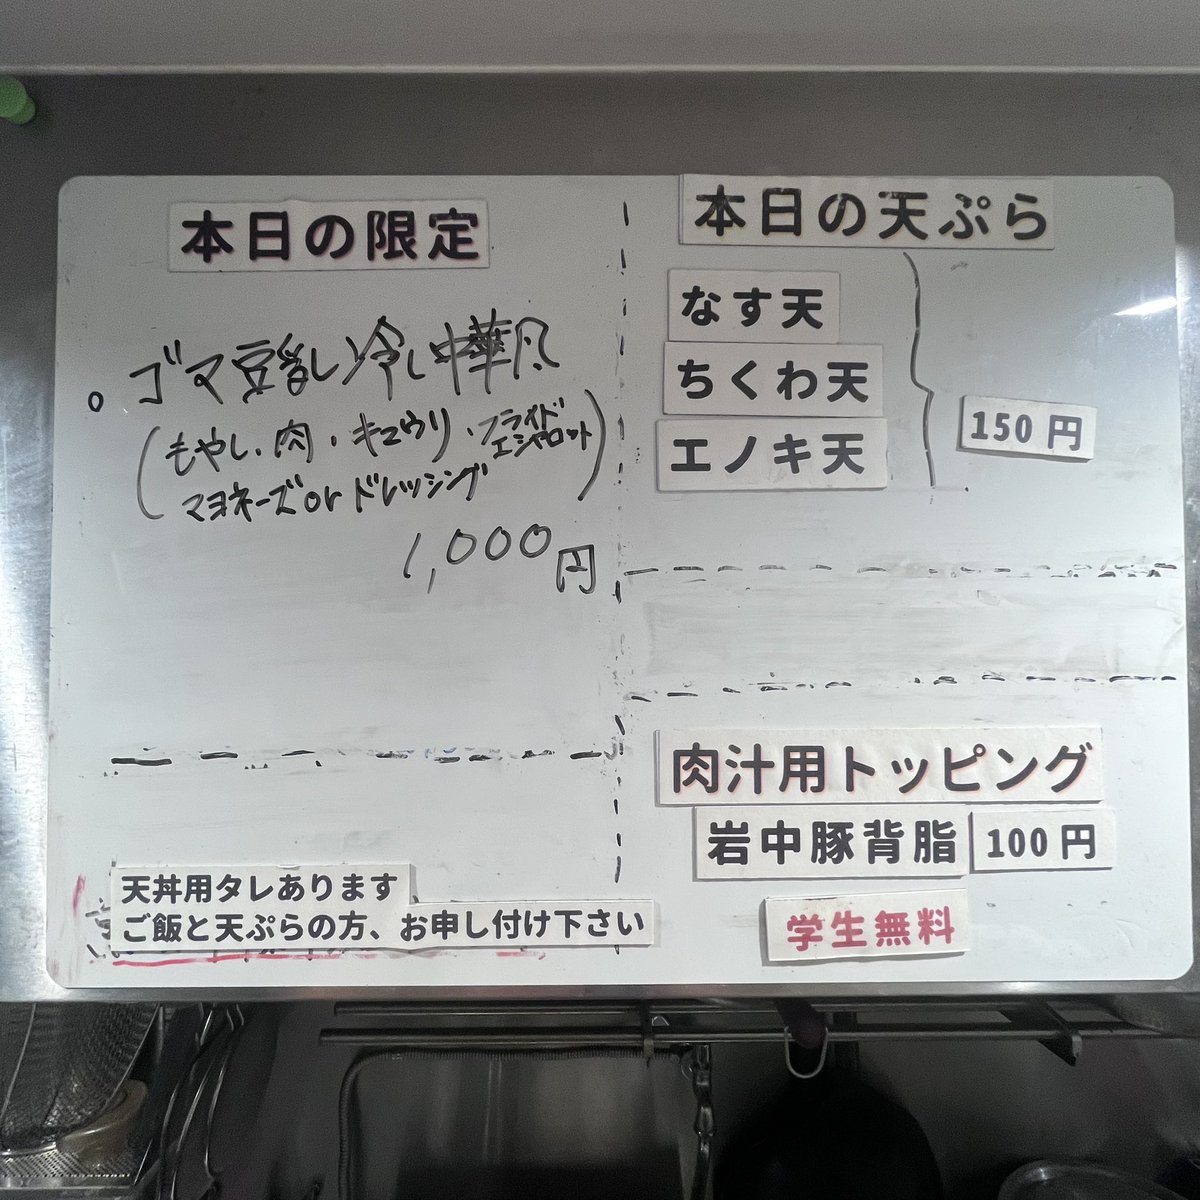 本日の限定
。ゴマ豆乳し冷し中華風
(もやし、肉・キュウリ・フライドエシャロット
マヨネーズorドレッシング)
1,000円
天丼用タレあります
ご飯と天ぷらの方、お申し付け下さい
本日の天ぷら
なす天
ちくわ天
エノキ天
150円
肉汁用トッピング
岩中豚背脂 100円
学生無料